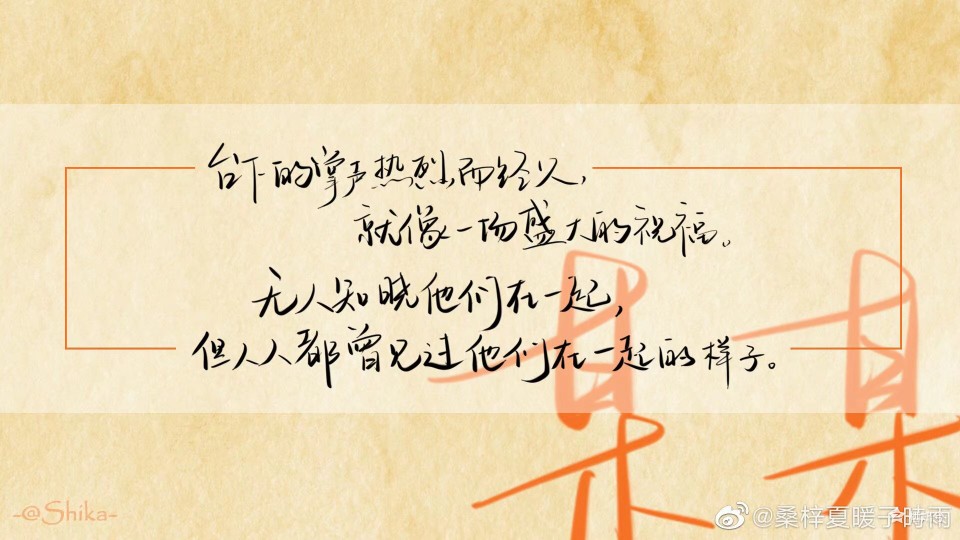 台下的掌声热烈而经久，
就像一场盛大的祝福。
无人知晓他们在一起，
但人人都曾见过他们在一起的样子。
某某
-@Shika-
@桑梓夏暖子時雨